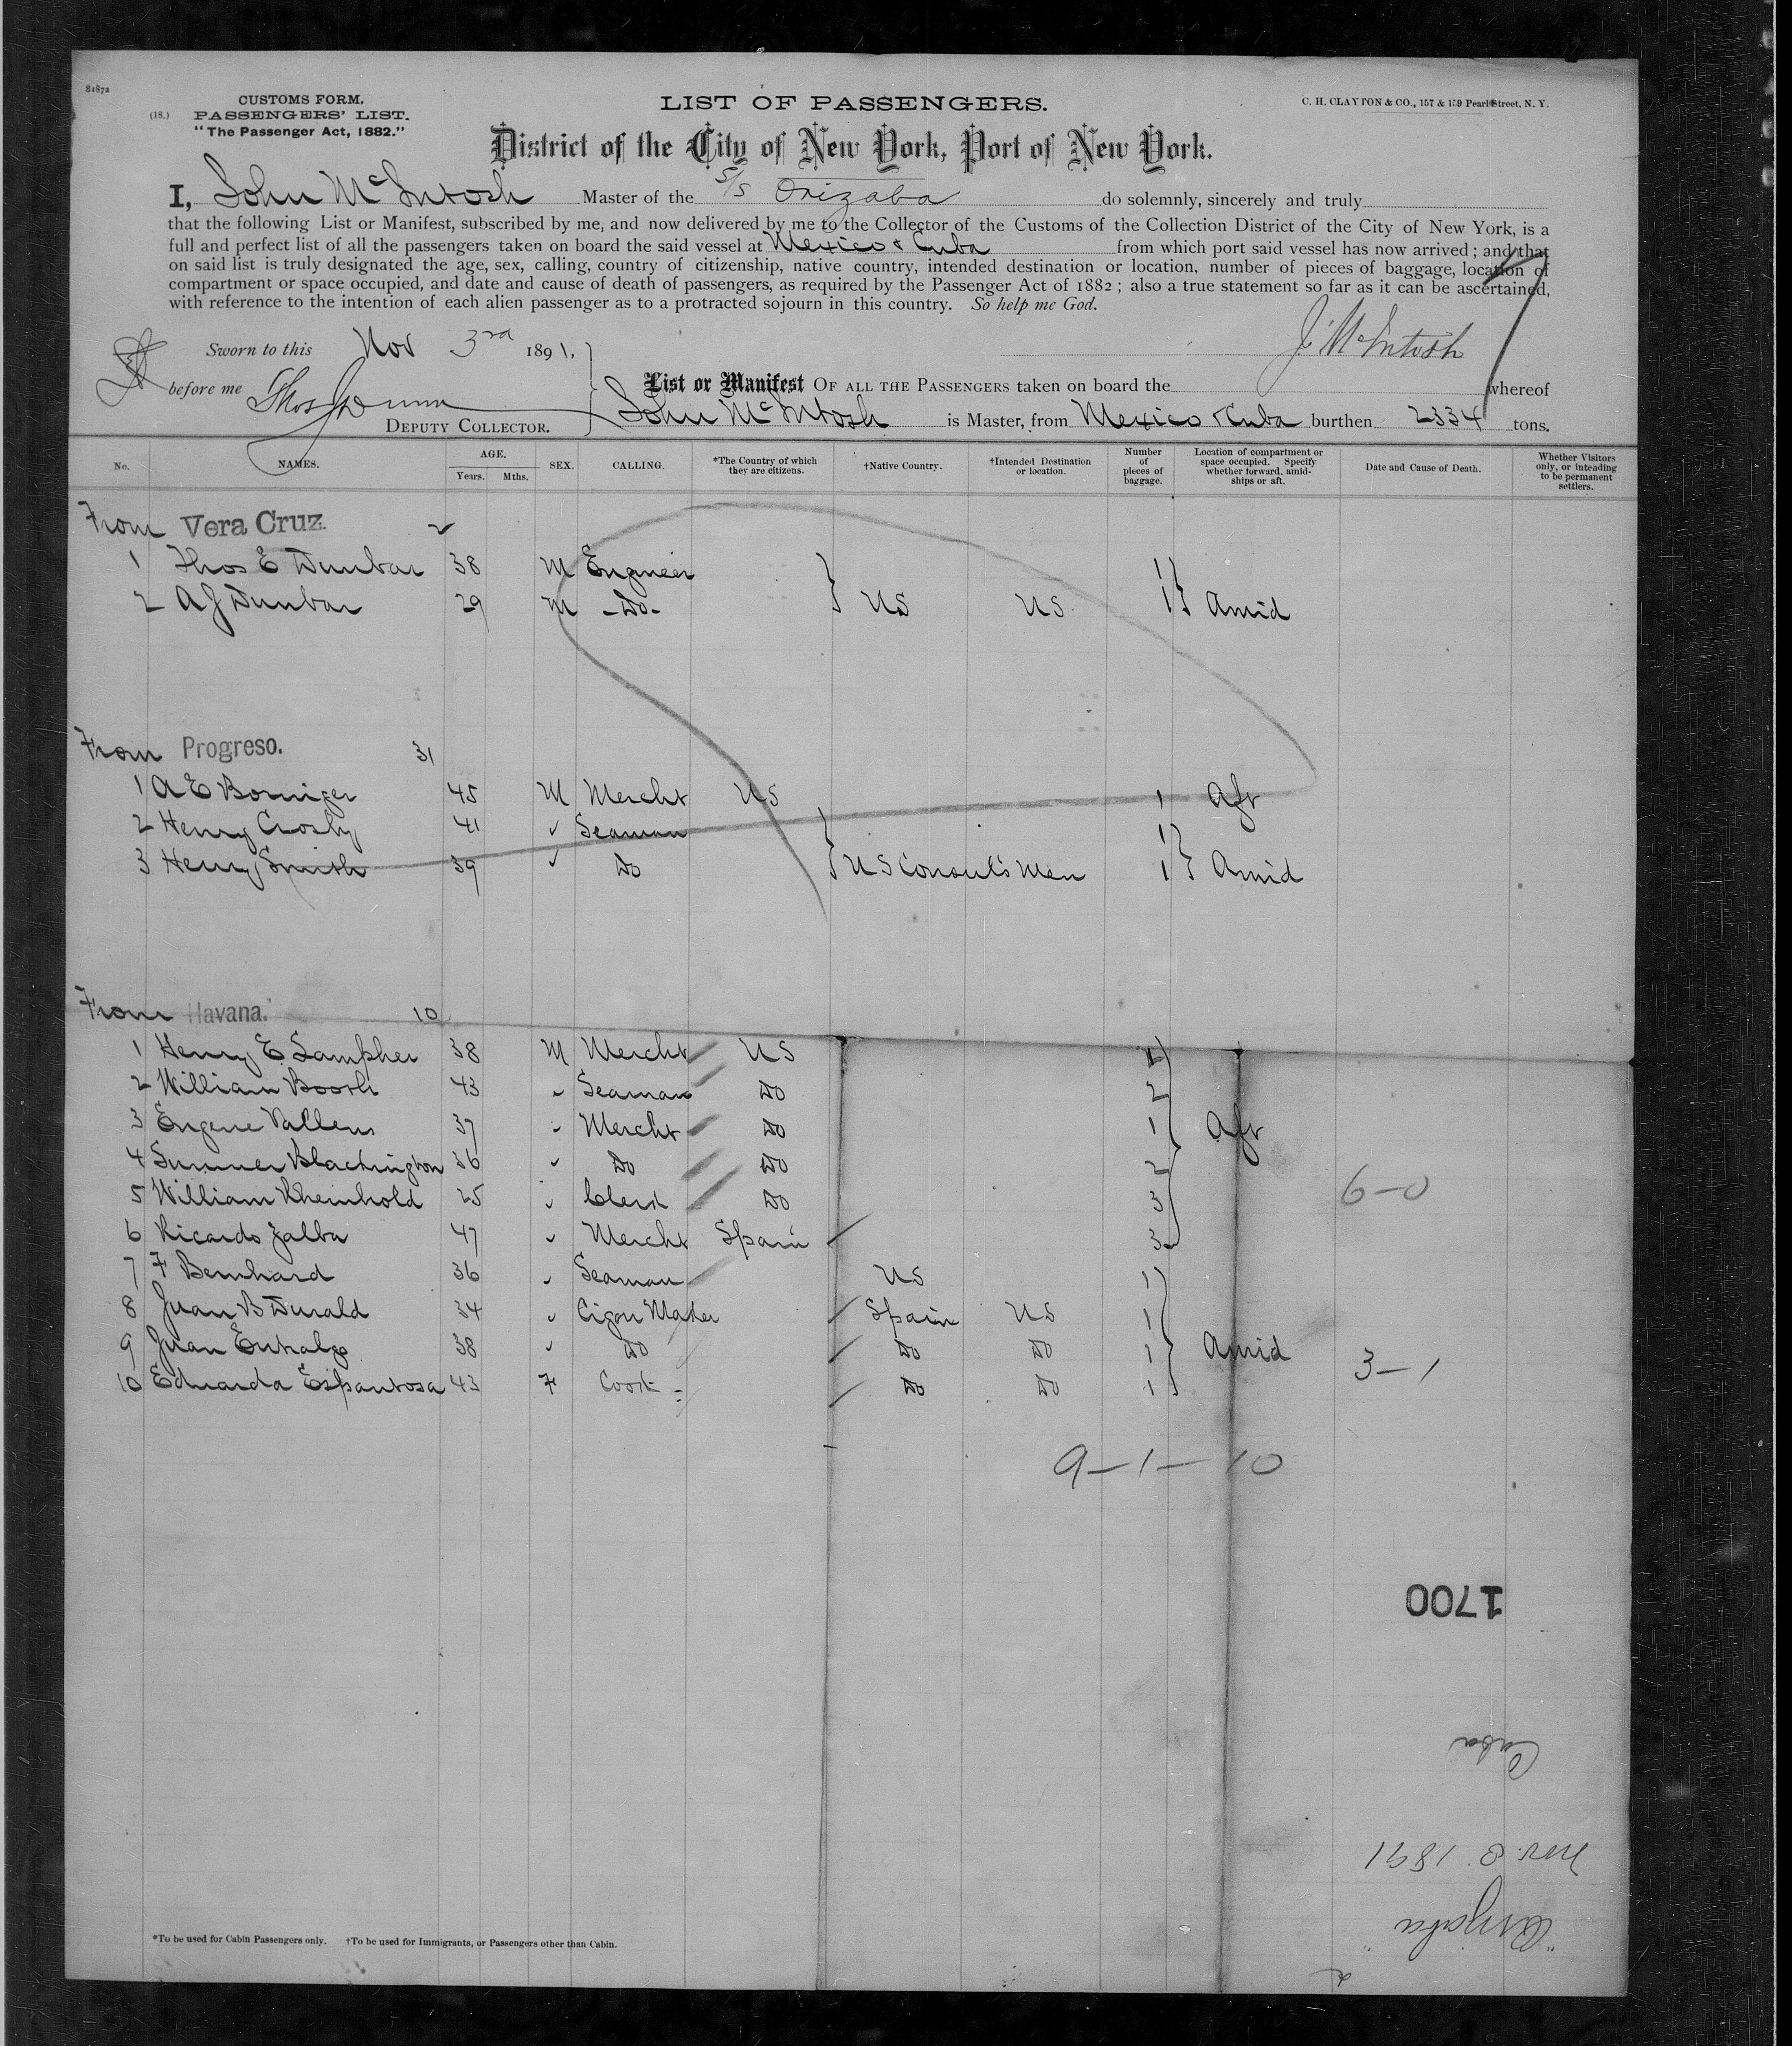 81872
CUSTOMS FORM.
(18.) PASSENGERS' LIST.
"The Passenger Act, 1882."
LIST OF PASSENGERS.
C. H. CLAYTON & CO., 157 & 159 Pearl Street, N. Y.
District of the City of New York, Port of New York.
I, John McIntosh Master of the S/S Orizaba do solemnly, sincerely and truly
that the following List or Manifest, subscribed by me, and now delivered by me to the Collector of the Customs of the Collection District of the City of New York, is a
full and perfect list of all the passengers taken on board the said vessel at Mexico & Cuba from which port said vessel has now arrived; and that
on said list is truly designated the age, sex, calling, country of citizenship, native country, intended destination or location, number of pieces of baggage, location of
compartment or space occupied, and date and cause of death of passengers, as required by the Passenger Act of 1882; also a true statement so far as it can be ascertained,
with reference to the intention of each alien passenger as to a protracted sojourn in this country. So help me God.
Sworn to this Nov 3rd 1891,
J. McIntosh
before me Thos
List or Manifest OF ALL THE PASSENGERS taken on board the whereof
DEPUTY COLLECTOR.
John McIntosh is Master, from Mexico & Cuba burthen 2334 tons.
No. NAMES. AGE. Years. Mths. SEX. CALLING. *The Country of which they are citizens. †Native Country. †Intended Destination or location. Number of pieces of baggage. Location of compartment or space occupied. Specify whether forward, amidships or aft. Date and Cause of Death. Whether Visitors only, or intending to be permanent settlers.
From Vera Cruz. 2
1 Thos E Dunbar 38 M Engineer 1
2 A J Dunbar 29 M -Do- US US 1 Amid
From Progreso. 31
1 A E Borniger 45 M Mercht US 1 Aft
2 Henry Crosby 41 ✓ Seaman 1
3 Henry Smith 39 ✓ Do US Consul's Men 1 Amid
From Havana. 10
1 Henry E Lampher 38 M Mercht US 1
2 William Booth 43 ✓ Seaman Do 2
3 Eugene Vallens 37 ✓ Mercht Do 1 Aft
4 Sumner Blackington 36 ✓ Do Do 2
5 William Rheinhold 25 ✓ Clerk Do 3 6-0
6 Ricardo Zalba 47 ✓ Mercht Spain 3
7 F Bernhard 36 ✓ Seaman US 1
8 Juan B Durald 34 ✓ Cigar Maker Spain US 1
9 Juan Entralgo 38 ✓ Do Do Do 1 Amid 3-1
10 Eduarda Espantosa 43 F Cook Do Do 1
9-1-10
1700
Cuba
Nov. 3. 1891
"Orizaba"
*To be used for Cabin Passengers only. †To be used for Immigrants, or Passengers other than Cabin.